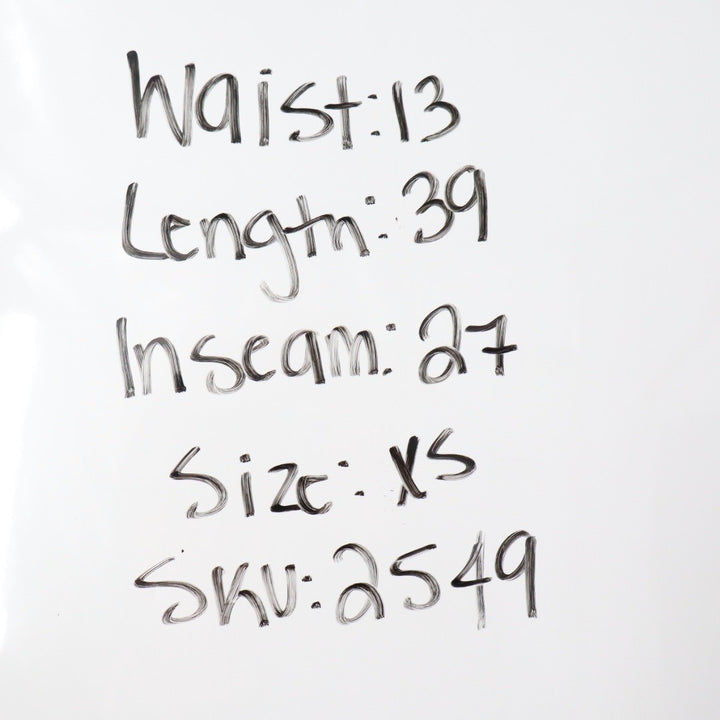 Waist: 13
Length: 39
Inseam: 27
Size: XS
SKU: 2549